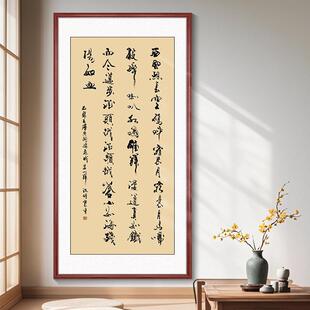 西風烈長空雁叫霜晨月霜晨月馬蹄
聲碎喇叭聲咽雄關漫道真如鐵
而今邁步從頭越從頭越蒼山如海殘
陽如血